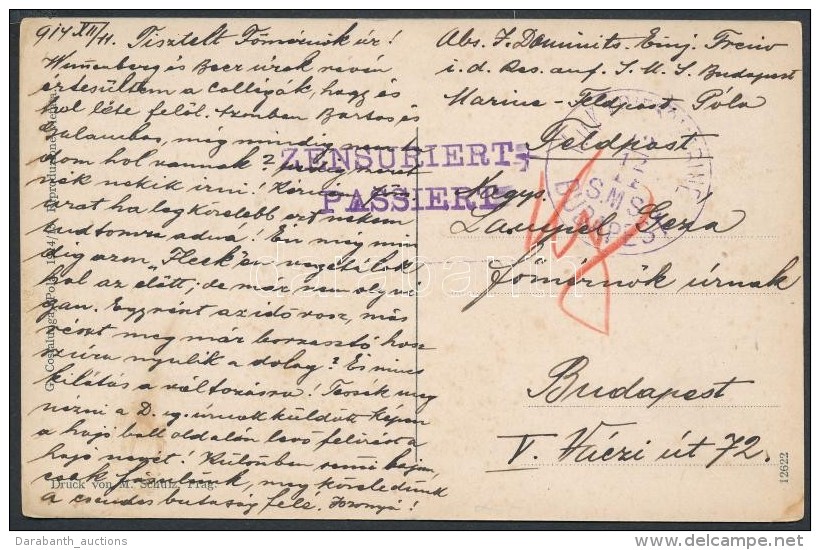 914 XII/11. Tisztelt Főmérnök úr!
Wunenberg és Beer urak révén
értesültem a collegák, hogy és
hol léte felöl. Azonban Bartos és
Galambos, még mindig nem
dom hol vannak?
nék nekik irni! Kérném
urat ha legközelebb ezt nekem
tudtomra adná! Én még min
dig azon "Fleck"en vegetálok
hol az előtt; de már nem olyvi
gan. Egyrészt az idő rosz, más
részt meg már borzasztó hosz
szúra nyulik a dolog? És nincs
kilátás a változásra! Tessék meg
nézni a D. ig. úrnak küldött képen
a hajó balt oldalán levő felirást a
hajó nevét! Különben semmi bajom,
csak meg közeledünk
a csendes butaság felé.
Abs. J. Dominits. Einj. Freiw
i. d. Res. auf. S. M. S. Budapest
Marine - Feldpost. Póla
Feldpost
ZENSURIERT
PASSIERT
S.M.S.
BUDAPEST
Nagys.
Geza
főmérnök úrnak
Budapest
V. Váczi út 72.
G. Costalunga, Pola, 1914/15. Reproduzione vietata
Druck von M. Schulz, Prag.
12622
darabanth
Darabanth_auctions
delcampe.net